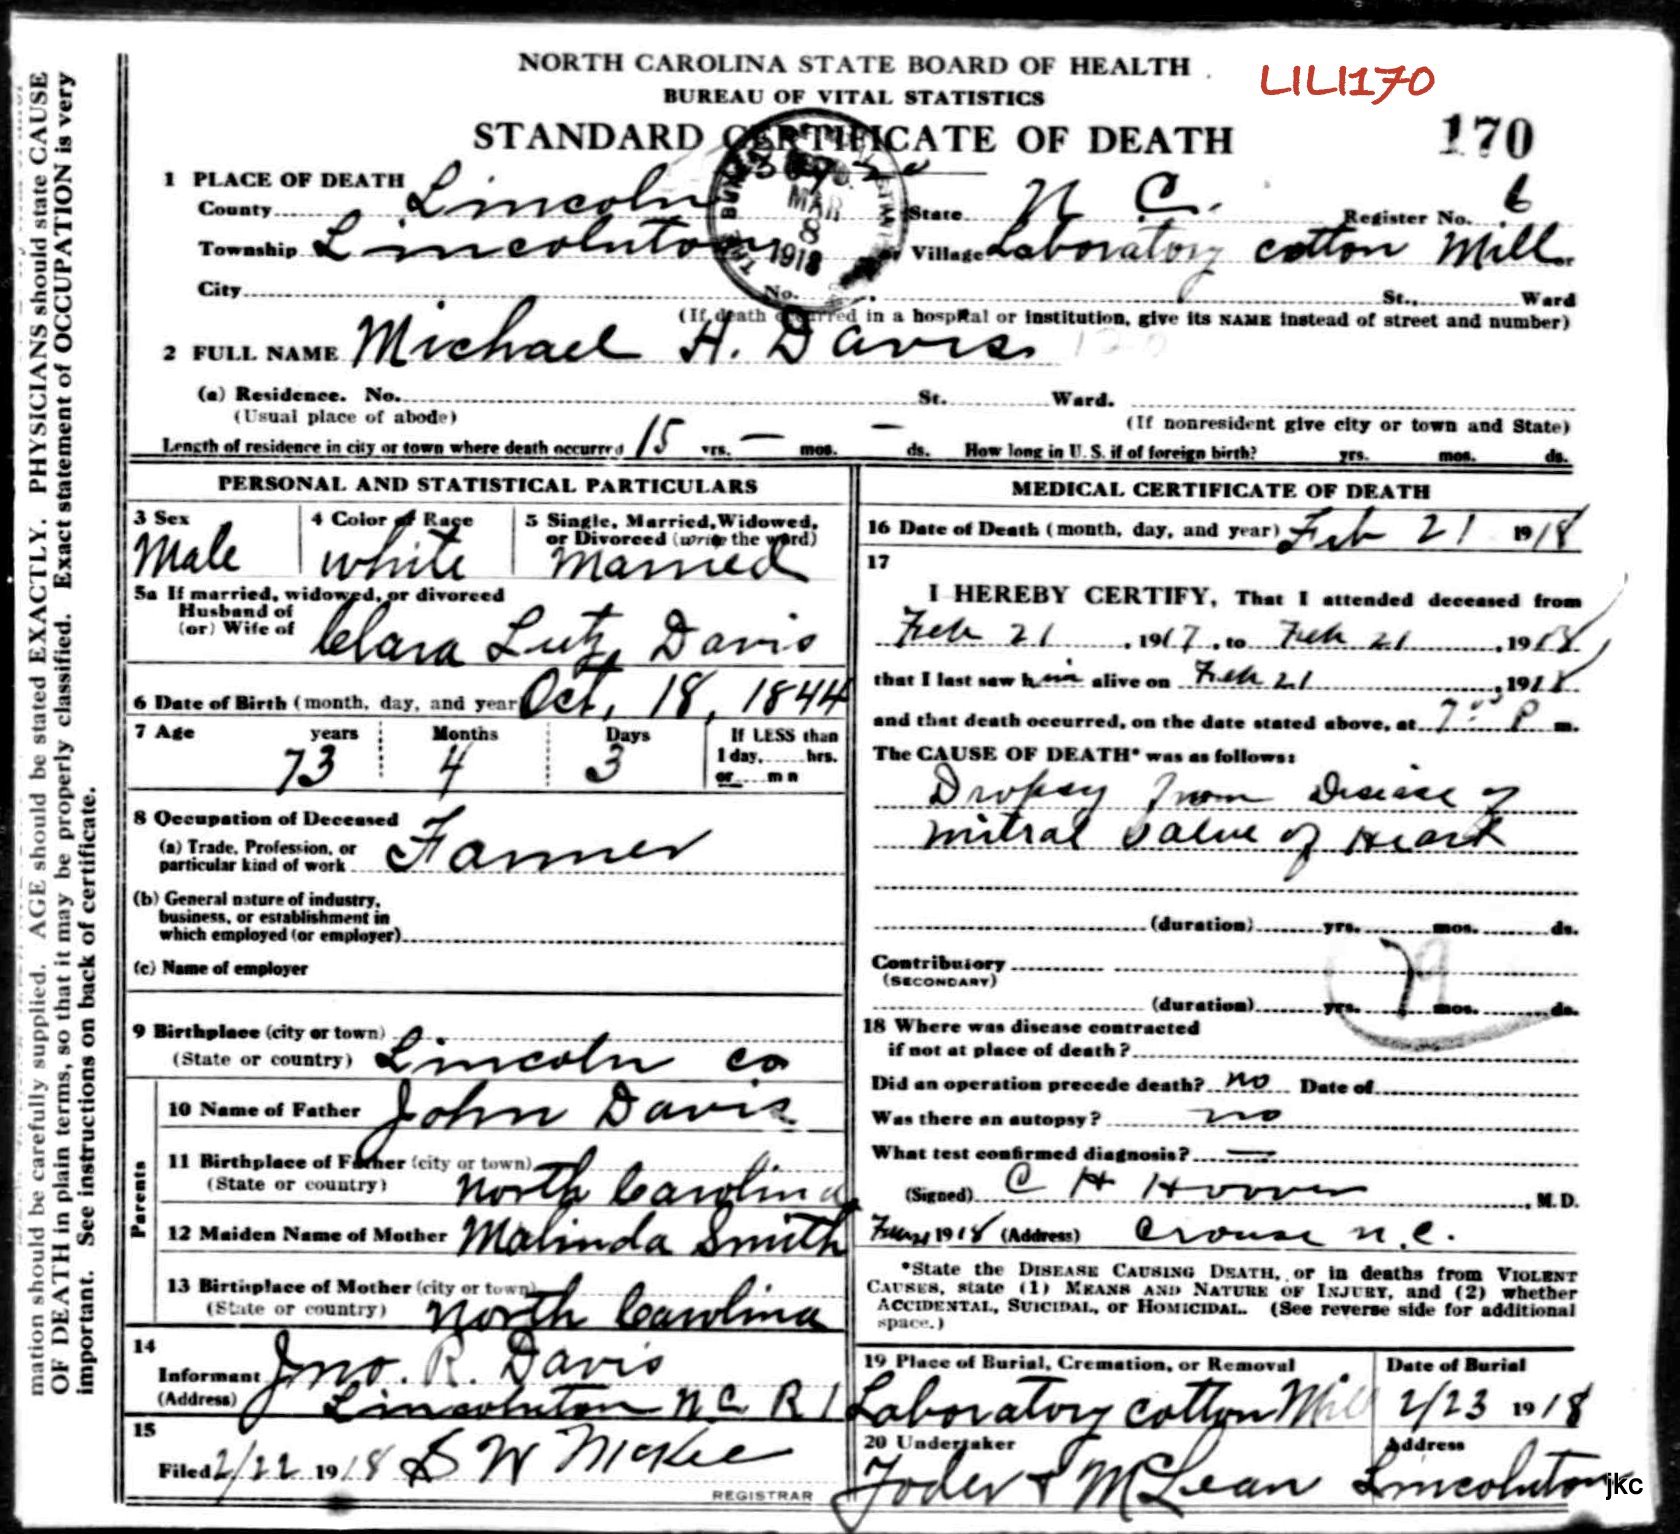 NORTH CAROLINA STATE BOARD OF HEALTH
LILI170
BUREAU OF VITAL STATISTICS
STANDARD CERTIFICATE OF DEATH
170
1 PLACE OF DEATH
County Lincoln State N C. Register No. 6
MAR 8 1918
Township Lincolnton or Village Laboratory cotton Mill or
City No. St., Ward
(If death occurred in a hospital or institution, give its NAME instead of street and number)
2 FULL NAME Michael H. Davis
(a) Residence. No. St. Ward.
(Usual place of abode) (If nonresident give city or town and State)
Length of residence in city or town where death occurred 15 yrs. — mos. — ds. How long in U. S. if of foreign birth? yrs. mos. ds.
PERSONAL AND STATISTICAL PARTICULARS
3 Sex 4 Color or Race 5 Single, Married, Widowed, or Divorced (write the word)
Male white Married
5a If married, widowed, or divorced
Husband of
(or) Wife of Clara Lutz Davis
6 Date of Birth (month, day, and year Oct, 18, 1844
7 Age years Months Days If LESS than
73 4 3 1 day, hrs.
or m n
8 Occupation of Deceased
(a) Trade, Profession, or
particular kind of work Farmer
(b) General nature of industry,
business, or establishment in
which employed (or employer)
(c) Name of employer
9 Birthplace (city or town)
(State or country) Lincoln co
Parents
10 Name of Father John Davis
11 Birthplace of Father (city or town)
(State or country) North Carolina
12 Maiden Name of Mother Malinda Smith
13 Birthplace of Mother (city or town)
(State or country) North Carolina
14
Informant Jno. R. Davis
(Address) Lincolnton N C R 1
15
Filed 2/22 1918 S W McKee
REGISTRAR
MEDICAL CERTIFICATE OF DEATH
16 Date of Death (month, day, and year) Feb 21 1918
17
I HEREBY CERTIFY, That I attended deceased from
Feb 21, 1917, to Feb 21, 1918
that I last saw him alive on Feb 21, 1918
and that death occurred, on the date stated above, at 7 P m.
The CAUSE OF DEATH* was as follows:
Dropsy from Disease of
mitral valve of Heart
(duration) yrs. mos. ds.
Contributory
(SECONDARY)
79
(duration) yrs. mos. ds.
18 Where was disease contracted
if not at place of death?
Did an operation precede death? no Date of
Was there an autopsy? no
What test confirmed diagnosis? —
(Signed) C H Hoover, M. D.
1918 (Address) Crouse N. C.
*State the DISEASE CAUSING DEATH, or in deaths from VIOLENT
CAUSES, state (1) MEANS AND NATURE OF INJURY, and (2) whether
ACCIDENTAL, SUICIDAL, or HOMICIDAL. (See reverse side for additional
space.)
19 Place of Burial, Cremation, or Removal Date of Burial
Laboratory cotton Mill 2/23 1918
20 Undertaker Address
Yoder & McLean Lincolnton
jkc
mation should be carefully supplied. AGE should be stated EXACTLY. PHYSICIANS should state CAUSE
OF DEATH in plain terms, so that it may be properly classified. Exact statement of OCCUPATION is very
important. See instructions on back of certificate.